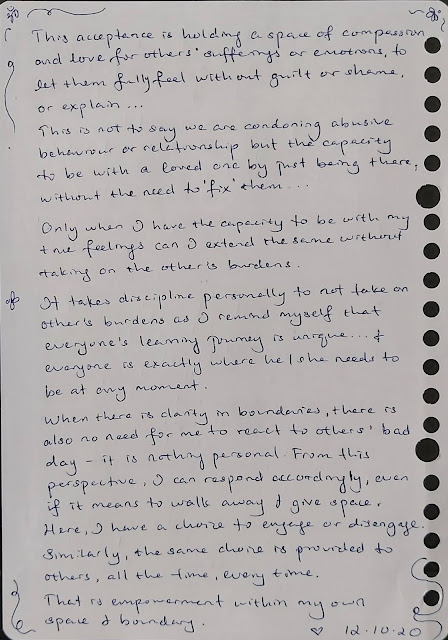 This acceptance is holding a space of compassion
and love for others' sufferings or emotions, to
let them fully feel without guilt or shame,
or explain ...
This is not to say we are condoning abusive
behaviour or relationship but the capacity
to be with a loved one by just being there,
without the need to 'fix' them ...
Only when I have the capacity to be with my
true feelings can I extend the same without
taking on the other's burdens.
It takes discipline personally to not take on
other's burdens as I remind myself that
everyone's learning journey is unique... &
everyone is exactly where he/she needs to
be at any moment.
When there is clarity in boundaries, there is
also no need for me to react to others' bad
day - it is nothing personal. From this
perspective, I can respond accordingly, even
if it means to walk away & give space.
Here, I have a choice to engage or disengage.
Similarly, the same choice is provided to
others, all the time, every time.
That is empowerment within my own
space & boundary.
12.10.20